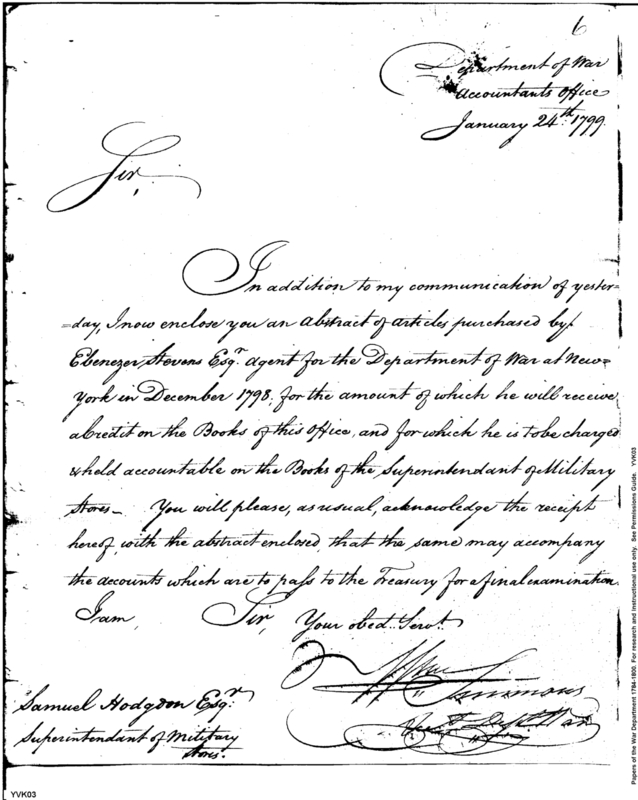 6
Department of War
Accountants Office
January 24th. 1799.
Sir,
In addition to my communication of yester=
=day, I now enclose you an Abstract of articles purchased by
Ebenezer Stevens Esqr. Agent for the Department of War at New=
York in December 1798, for the amount of which he will receive
a Credit on the Books of this Office, and for which he is to be charged
& held accountable on the Books of the Superintendant of Military
Stores— You will please, as usual, acknowledge the receipt
hereof, with the abstract enclosed, that the same may accompany
the accounts which are to pass to the Treasury for a final examination.
I am, Sir, Your obed. Servt.
Wm Simmons
Samuel Hodgdon Esqr.
Acct. Dept. War
Superintendant of Military
Stores.
Papers of the War Department 1784-1800. For research and instructional use only. See Permissions Guide. YVK03
YVK03